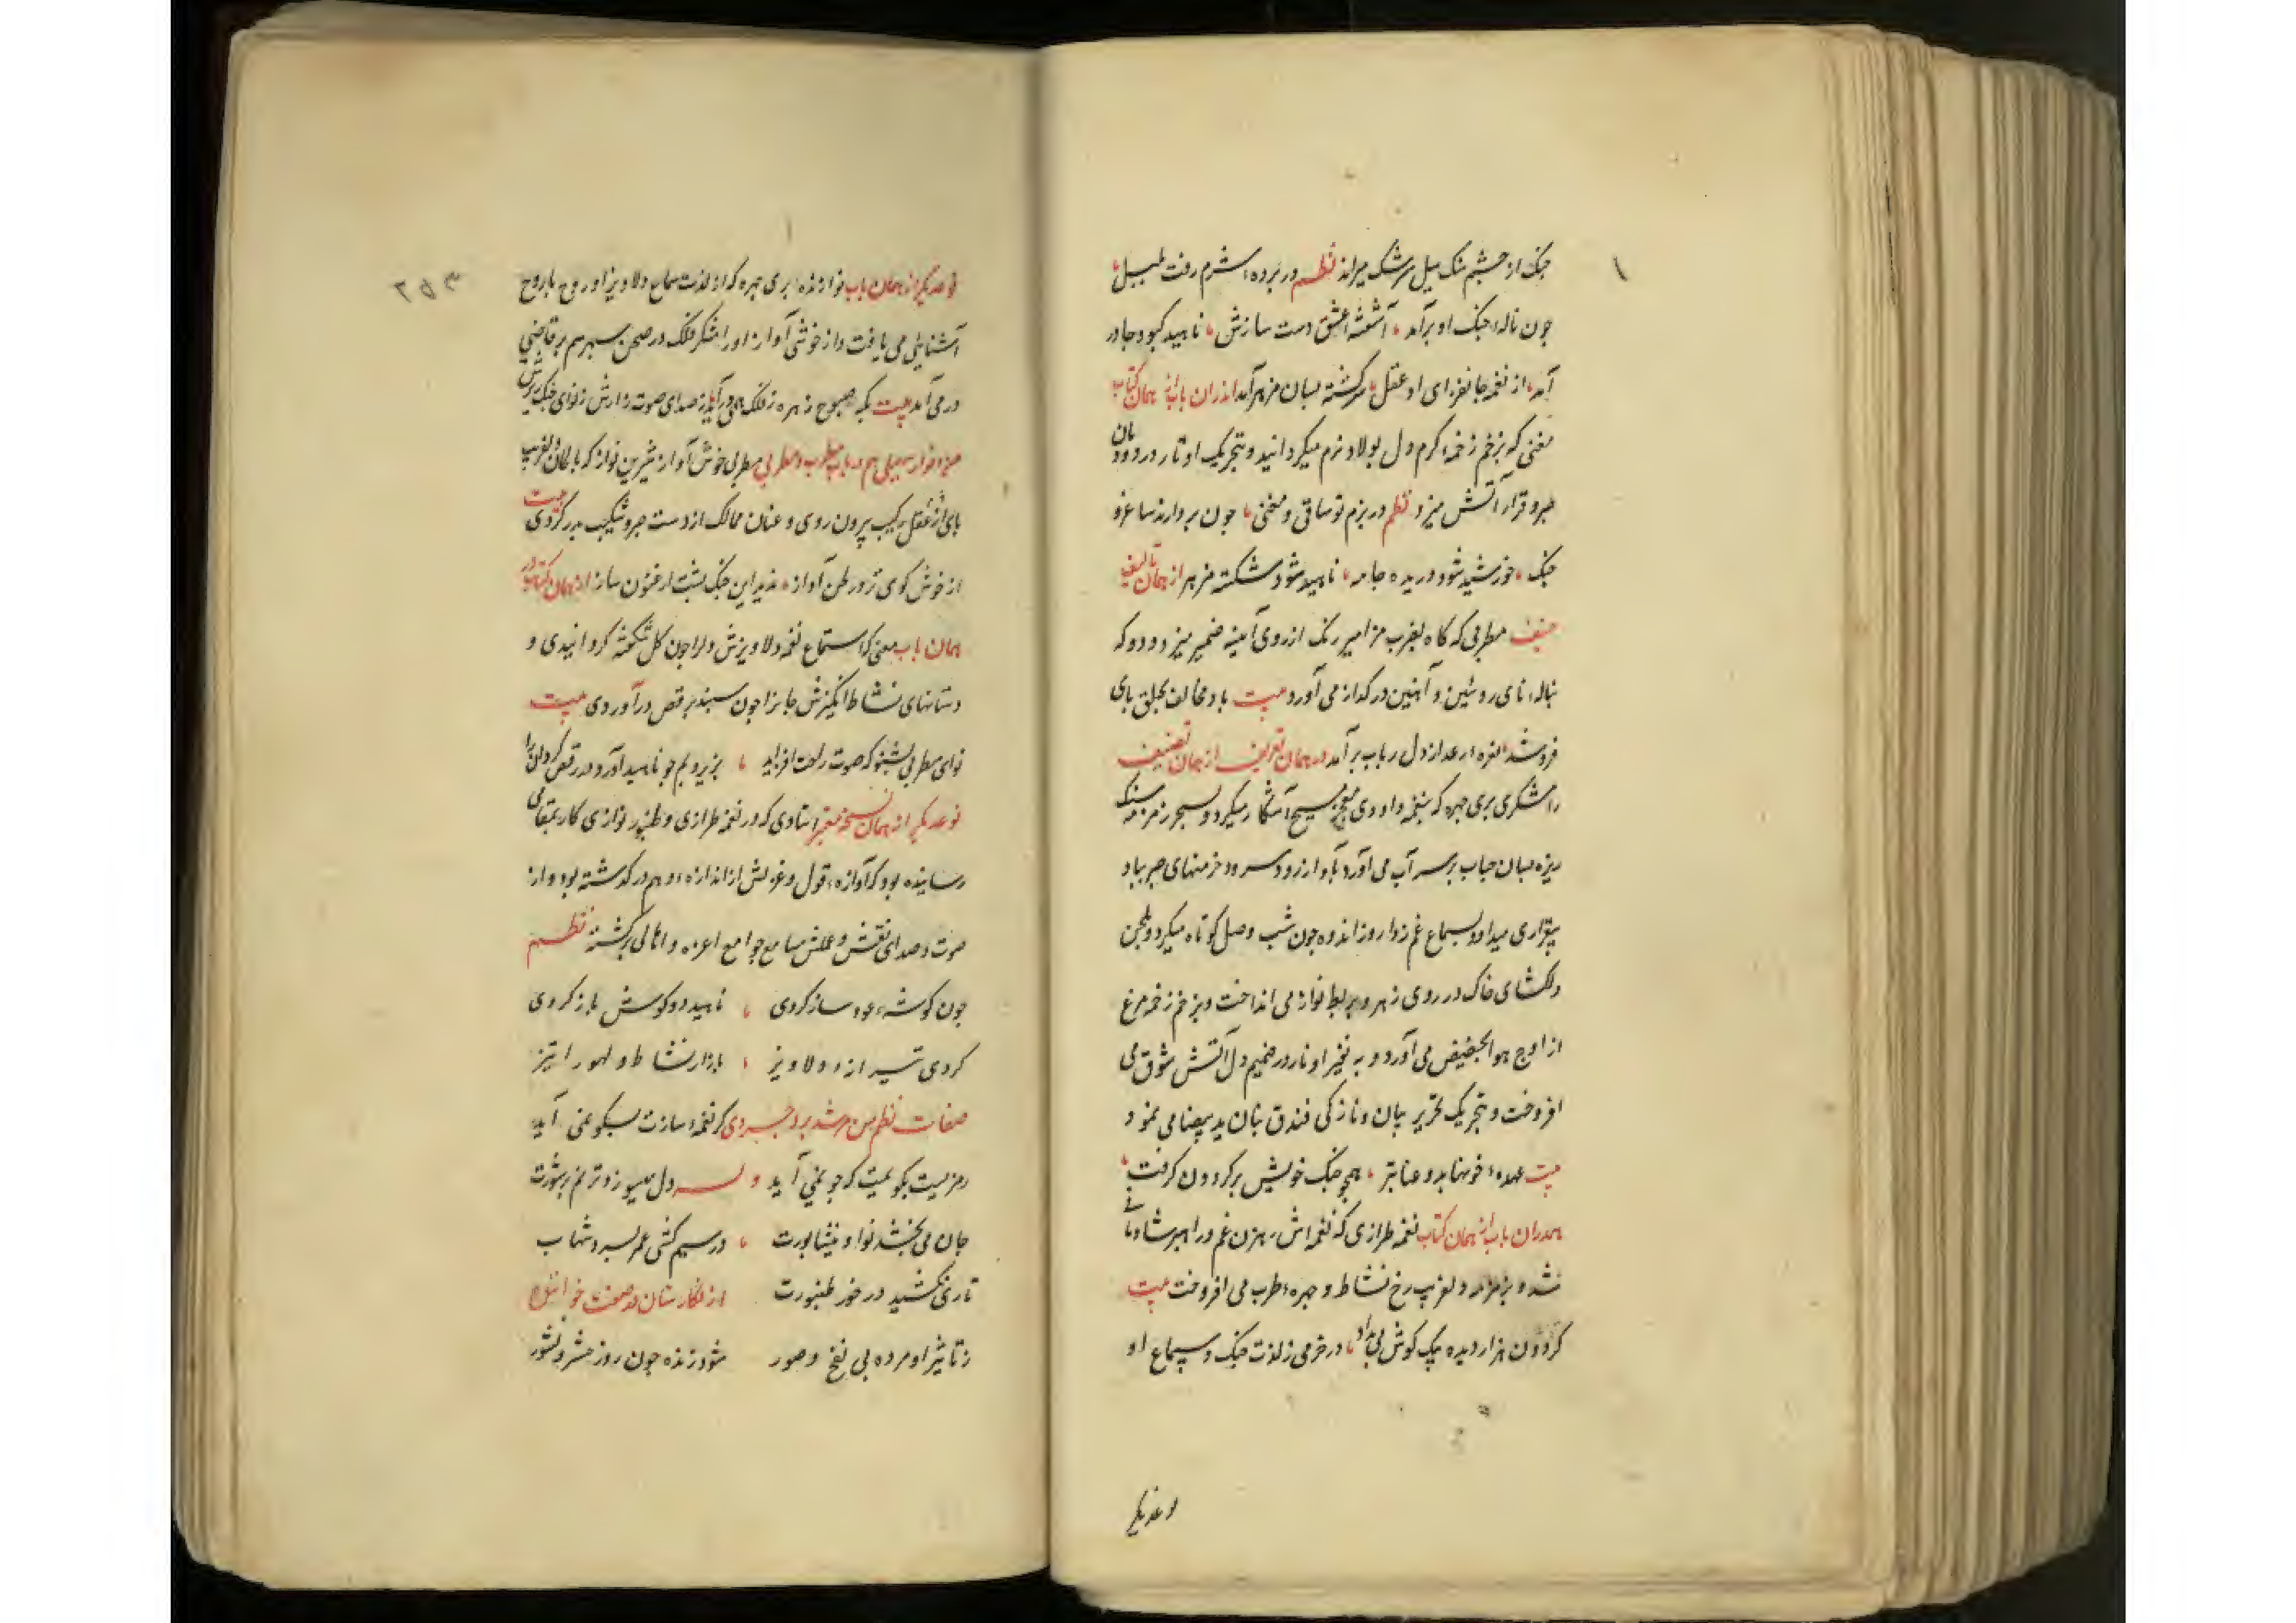 چنک از چشم تنک سیل سرشک میراند نظم در پرده شرم رفت بلبل
چون ناله چنک او برآمد آشفته عشق دست سازش ناهید کبود چادر
آمد از نغمه جانفزای او عقل سرکشته بسان مزمر آمد اندران باب از همان کتاب
مغنی که بزخم زخمه کرم دل پولاد نرم میکردانید و بتحریک اوتار در دودمان
صبر و قرار آتش میزد نظم در بزم تو ساقی و مغنی چون بردارند ساغر و
چنک خورشید شود دریده جامه ناهید شود شکسته مزمر از همان تالیف
منیف مطربی که کاه بضرب مزامیر زنک از روی آیینه ضمیر میزدود و که
بناله نای روئین و آهنین در کداز می آورد بیت باد مخالف بحلق نای
فروشد نعره رعد از دل رباب برآمد در همان تعریف از همان تصنیف
رامشکری پری چهره که بنغمه داودی معجز مسیح آشکار میکرد و بسحر زمزمه سنک
ریزه بسان حباب بر سر آب می آورد بآواز رود و سرود خرمنهای صبر بباد
بیقراری میداد و بسماع غم زدا روز اندوه چون شب وصل کوتاه میکرد و بلحن
دلکشای خاک در روی زهره بربط نواز می انداخت و بزخم زخمه مرغ
از اوج هوا بحضیض می آورد و به نغیر اوتار در ضمیر دل آتش شوق می
افروخت و بتحریک تحریر بیان و نازکی فندق بنان ید بیضا می نمود
بیت عهده خونها بدو عنابتر همچو چنک خویش برکردون کرفت
همدران باب از همان کتاب نغمه طرازی که نغمه اش رهزن غم و راهبر شادمانی
شده بزمزمه دلفریب رخ نشاط و چهره طرب می افروخت بیت
کردون هزار دیده یک کوش می بداد در خرمی ز لذت چنک و سماع او
نوعدیکر
۲۵۳
نوعدیکر از همان باب نوازنده پری چهره که از لذت سماع دلاویز او روح با روح
آشنایی می یافت و از خوشی آواز او رامشکر فلک در صحن سپهر برقاصی
در می آمد بیت بکه صبوح زهره ز فلک همی درآید ز صدای صوت زارش ز نوای چنک زیرش
من انوار سهیلی هم در باب مطرب و مطربی مطربی خوش آواز شیرین نواز که بالحان دلفریب
پای از عقل رکیب بیرون روی و عنان ممالک از دست صبر و شکیب بدر کردی بیت
از خوش کوی ترو رطن آوازه ندید این چنک پشت ارغنون ساز از همان کتاب در
همان باب مغنی که استماع نغمه دلاویزش دلرا چون کل شکفته کردانیدی و
دستانهای نشاط انکیزش جانرا چون سپند برقص درآوردی بیت
نوای مطربی بشنو که صوت راحت افزاید بزیر و بم چو ناهید آورد در رقص کردانرا
نوعدیکر از همان نسخه معتبر استادی که در نغمه طرازی و طنبور نوازی کار بمقامی
رسانیده بود که آوازه قول و غزلش از اندازه وهم در کذشته بود و از
صوت و صدای نقش و عملش مسامع جوامع اعزه و اهالی پر کشته نظم
چون کوشه عود ساز کردی ناهید دو کوش باز کردی
کردی تیر آزه دلاویز بازار نشاط و لهو را تیز
صفات نظم من مرشد بروجردی کر نغمه سازت بسکو عنی آید
رمزیست بکو یمیت که چو نمی آید وله دل میسوزد ترنم پرشورت
جان می بخشد نوای نیشابورت در سیم کشی عمر بسر برد شهاب
تاری نکشید در خور طنبورت از نکارستان در صفت خواننده
ز تاثیر او مرده بی نفخ و صور شود زنده چون روز حشر و نشور